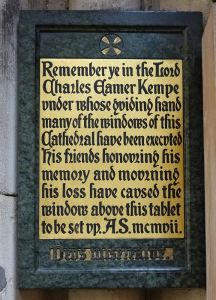 Remember ye in the Lord
Charles Eamer Kempe
vnder whose gviding hand
many of the windows of this
Cathedral have been execvted
His friends honovring his
memory and movrning
his loss have cavsed the
window above this tablet
to be set vp. A.S. mcmvii.